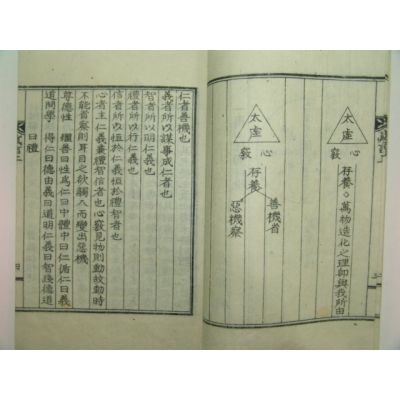 太虛
心竅
存養○萬物造化之理卽與我所由
太虛
心竅
存養
善機省
惡機察
仁者善機也
義者所以謀事成仁者也
智者所以明仁也
禮者所以行仁也
信者所以恒於仁義恒於禮智者也
心者主仁義兼禮智信者也心竅見物則動故動時
不能省察則耳目之欲觸入而變出惡機
尊德性 繼善曰性爲仁曰中體中曰仁循仁曰義
道問學 得仁曰德由義曰道明仁義曰智踐德道
曰禮